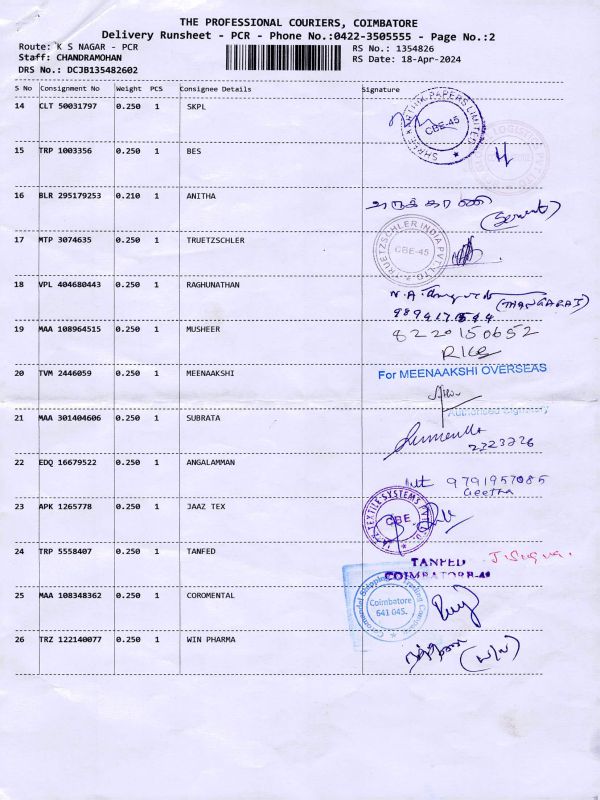 THE PROFESSIONAL COURIERS, COIMBATORE
Delivery Runsheet - PCR - Phone No.:0422-3505555 - Page No.:2
Route: K S NAGAR - PCR RS No.: 1354826
Staff: CHANDRAMOHAN RS Date: 18-Apr-2024
DRS No.: DCJB135482602
S No Consignment No Weight PCS Consignee Details Signature
14 CLT 50031797 0.250 1 SKPL
PAPERS LIMITED SHREE CBE-45
15 TRP 1003356 0.250 1 BES
16 BLR 295179253 0.210 1 ANITHA
17 MTP 3074635 0.250 1 TRUETZSCHLER
TRUETZSCHLER INDIA PVT. LTD. CBE-45
18 VPL 404680443 0.250 1 RAGHUNATHAN
(THANGARAJ)
19 MAA 108964515 0.250 1 MUSHEER 8220150652
20 TVM 2446059 0.250 1 MEENAAKSHI For MEENAAKSHI OVERSEAS
Authorised Signatory
21 MAA 301404606 0.250 1 SUBRATA
22 EDQ 16679522 0.250 1 ANGALAMMAN 9791957085
Geetha
23 APK 1265778 0.250 1 JAAZ TEX
TEXTILE SYSTEMS CBE
24 TRP 5558407 0.250 1 TANFED TANFED
COIMBATORE-41
25 MAA 108348362 0.250 1 COROMENTAL
Coromandal Shipping Trading Company Coimbatore 641 045.
26 TRZ 122140077 0.250 1 WIN PHARMA (WIN)